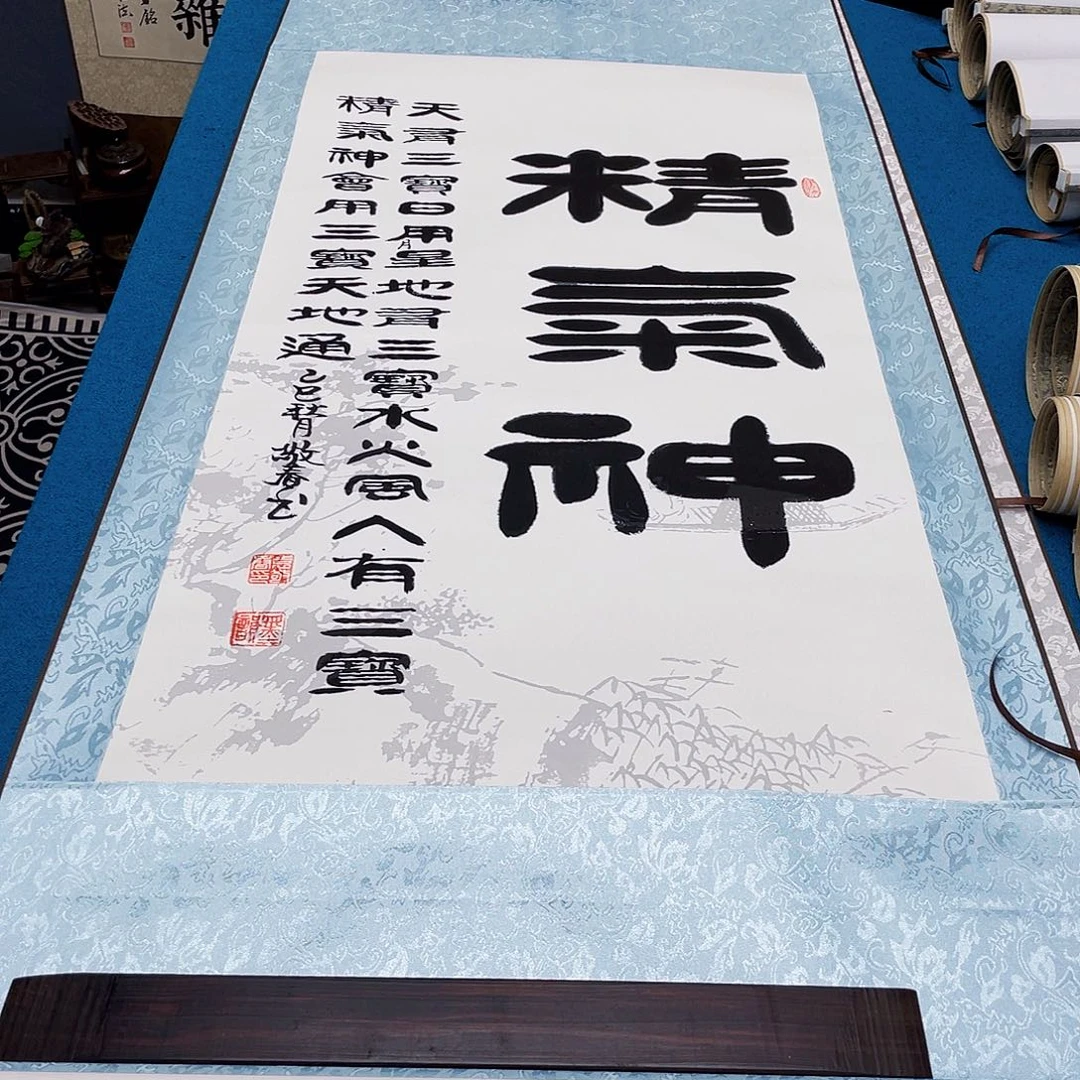 精氣神
天有三寶日用月星地有三寶水火風人有三寶
精氣神會用三寶天地通
乙巳秋月敬春书
雜
銘